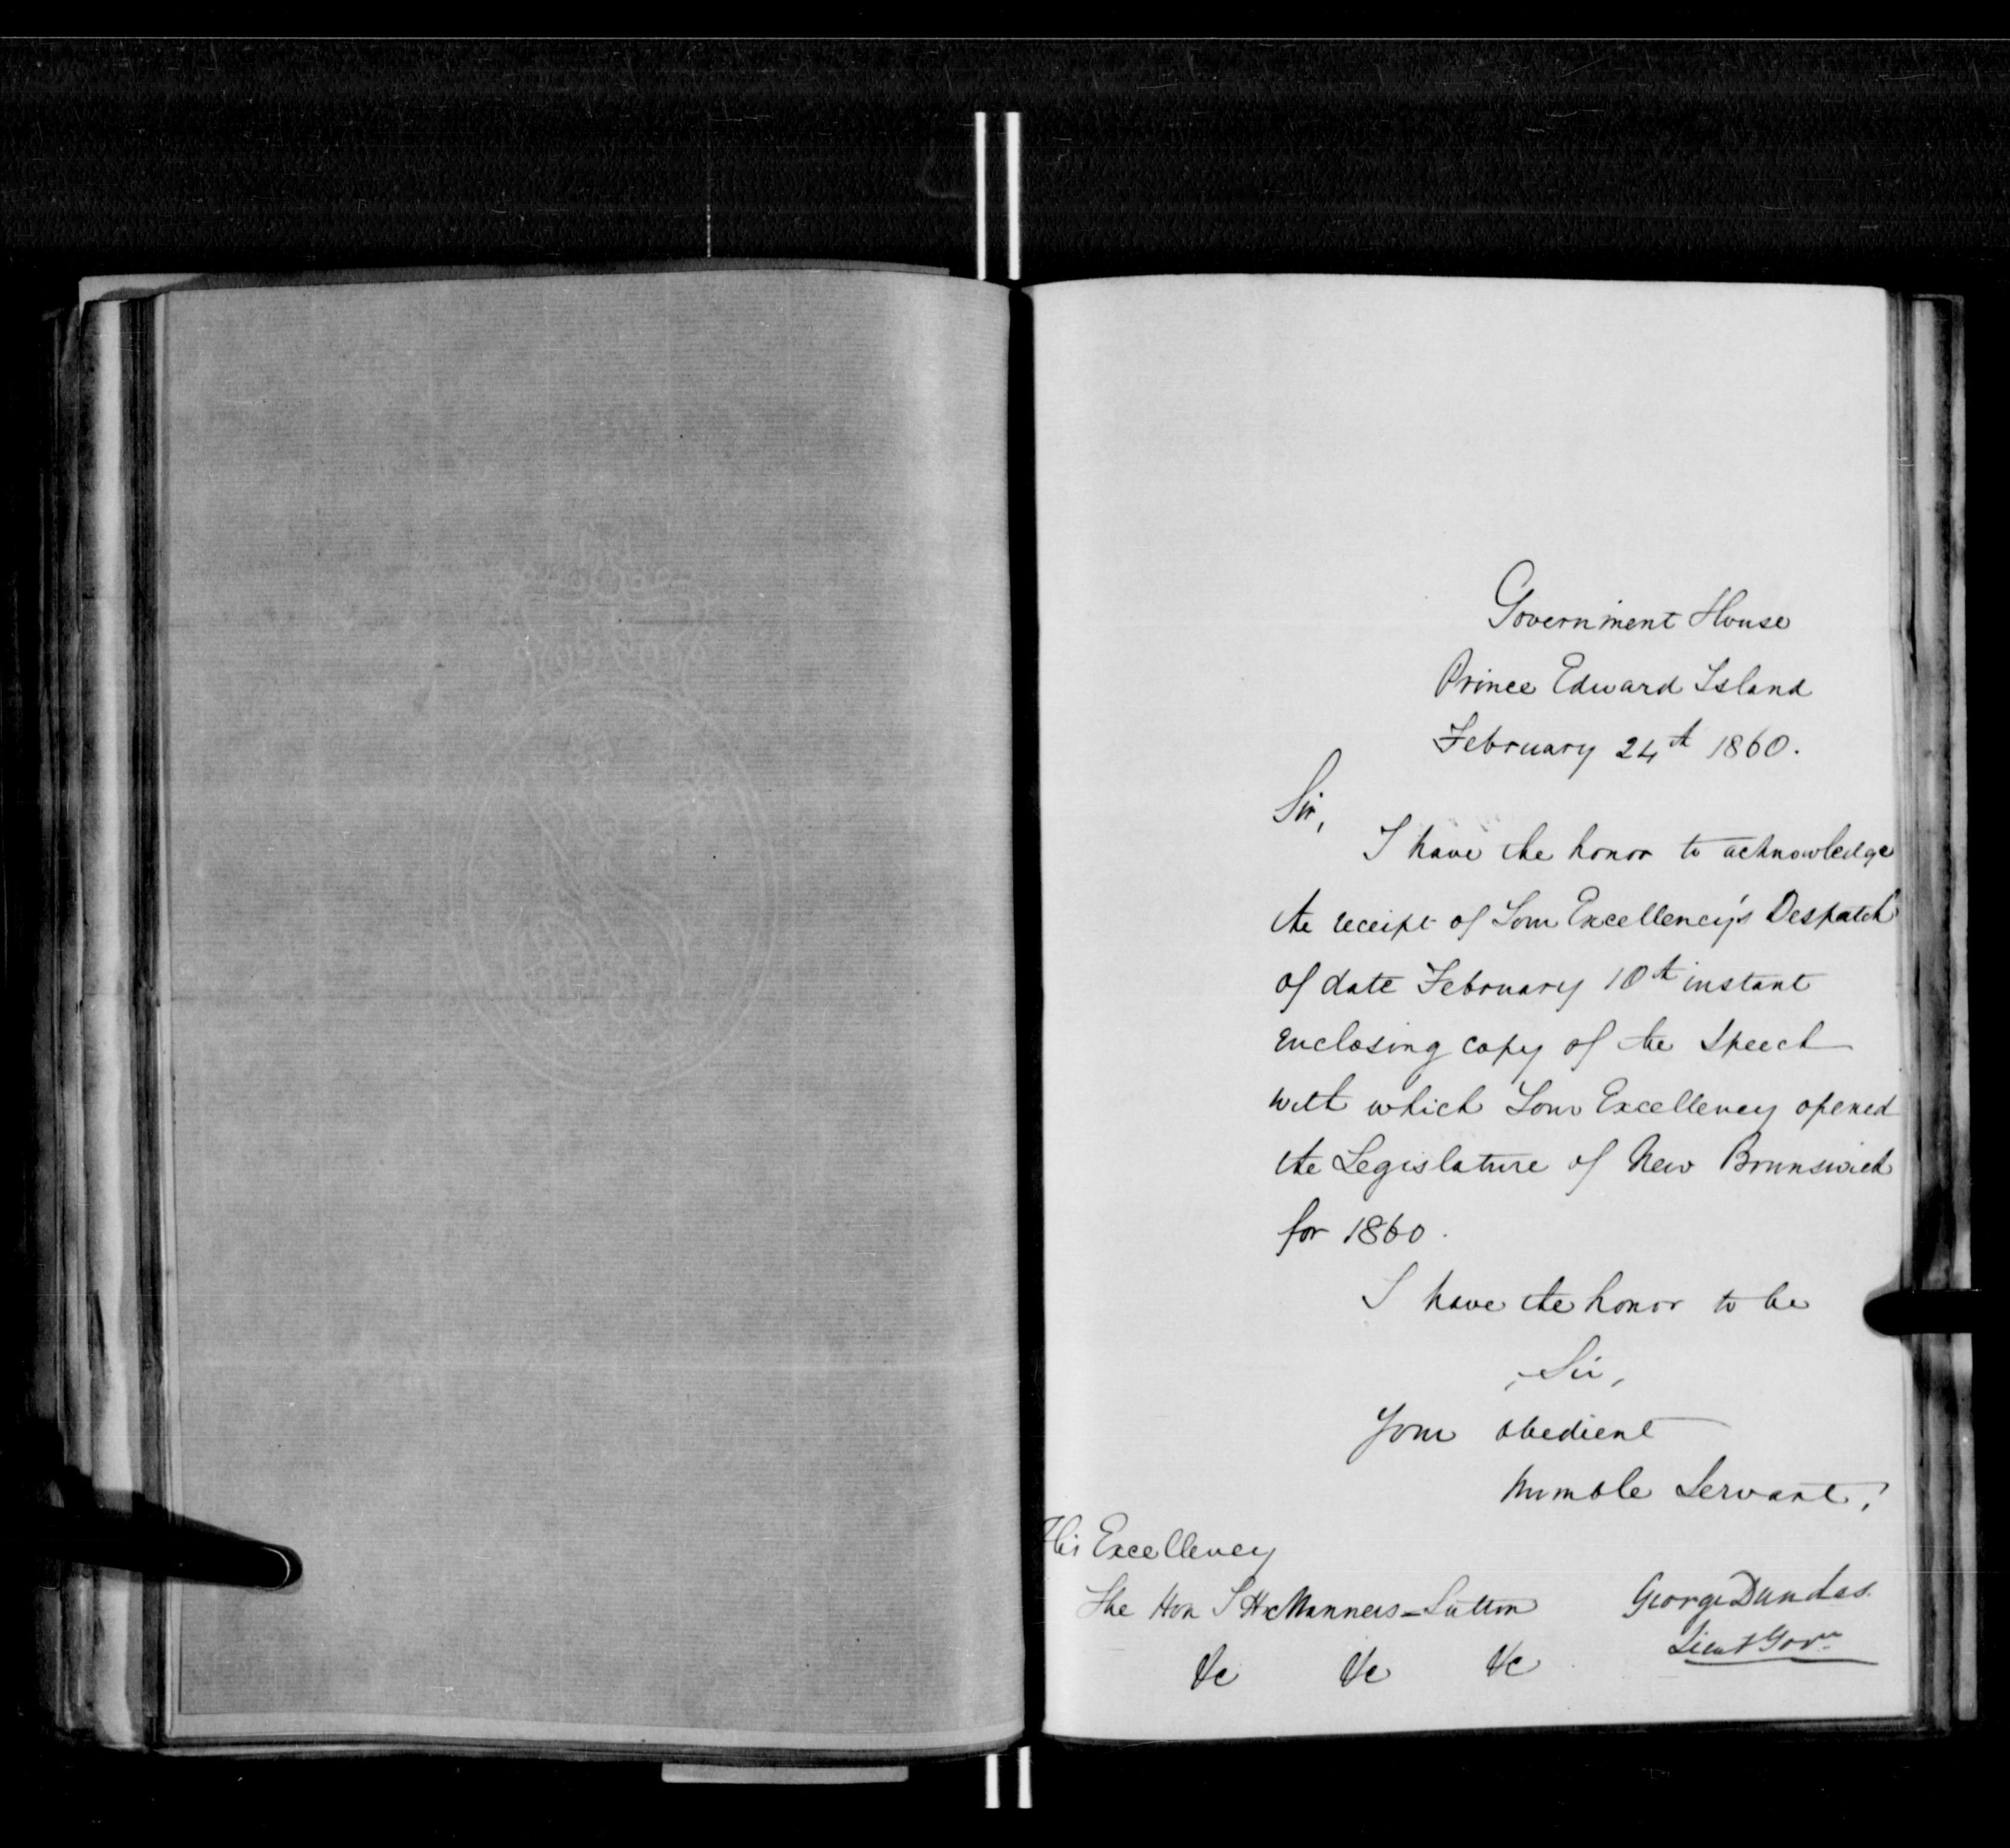 Government House
Prince Edward Island
February 24th 1860.
Sir,
I have the honor to acknowledge
the receipt of Your Excellency's Despatch
of date February 10th instant
enclosing copy of the Speech
with which Your Excellency opened
the Legislature of New Brunswick
for 1860.
I have the honor to be
Sir,
Your obedient
humble Servant,
His Excellency
The Hon J H Manners-Sutton
George Dundas.
Lieut Govr.
&c &c &c